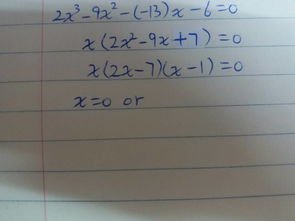 2x³-9x²-(-13)x-6=0
x(2x²-9x+7)=0
x(2x-7)(x-1)=0
x=0 or